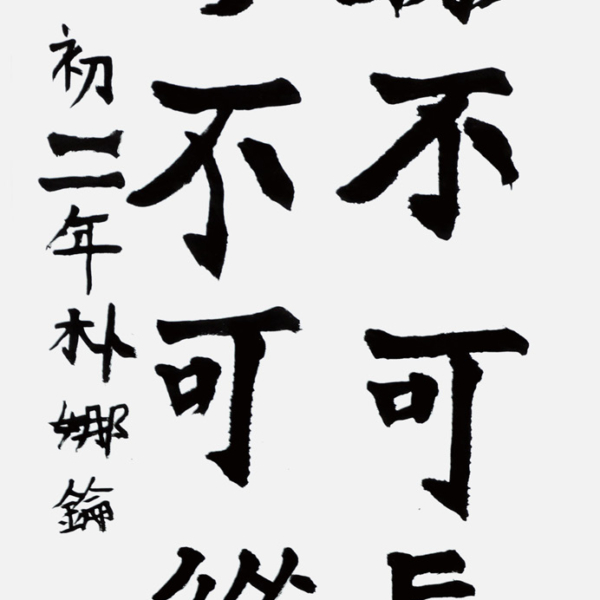 不可
不可
初二年朴娜錀